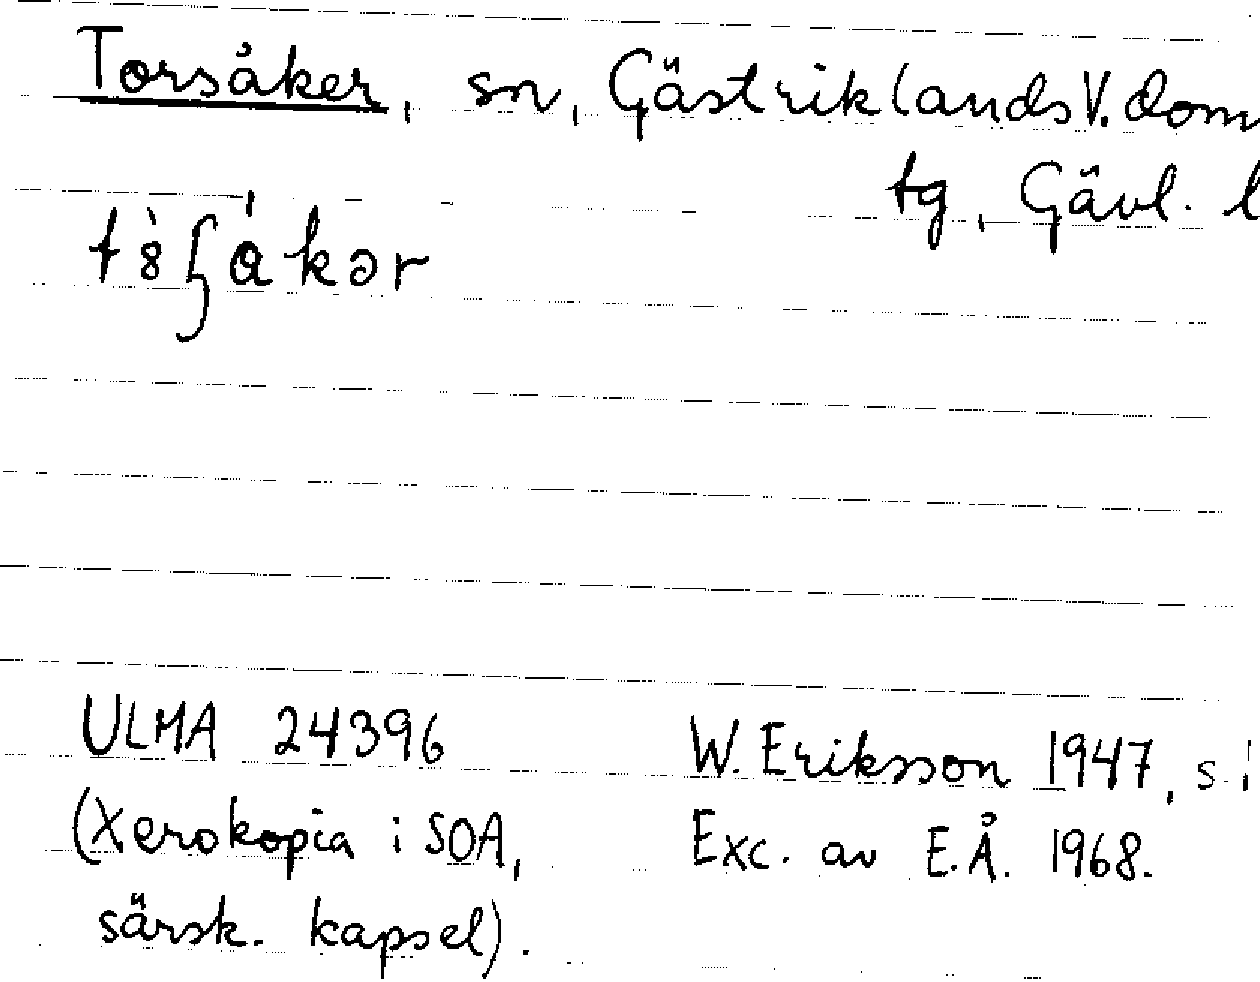 Torsåker, sn, Gästriklands V. dom
tg, Gävl. l
ULMA 24396
W. Eriksson 1947, s.
(Xerokopia i SOA,
Exc. av E.Å. 1968.
särsk. kapsel).